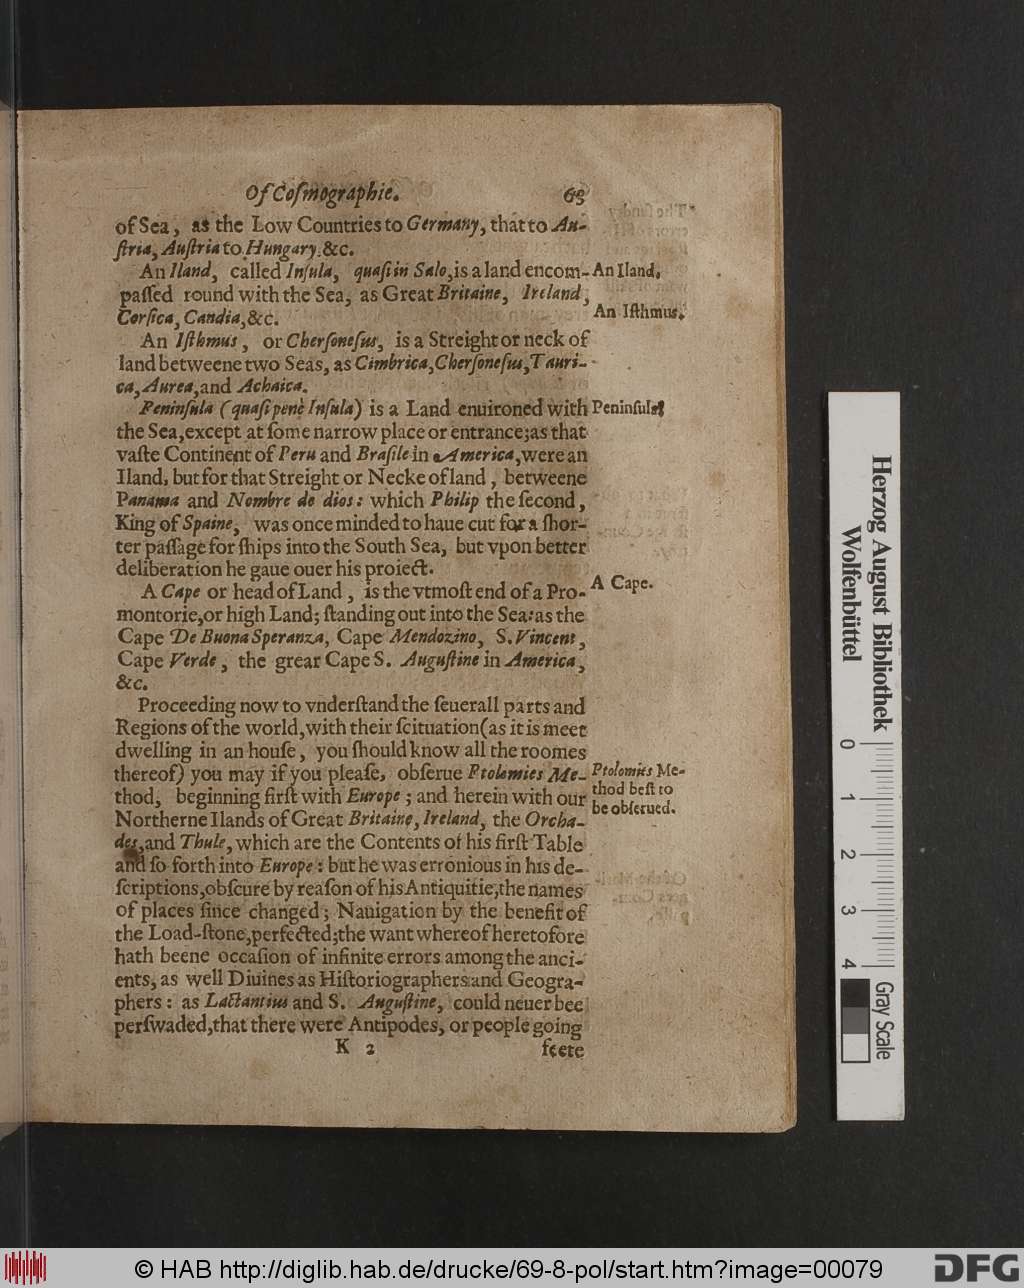 Of Coſmographie. 69
of Sea, as the Low Countries to Germany, that to Au-
ſtria, Auſtria to Hungary. &c.
An Iland, called Inſula, quaſi in Salo, is a land encom-
An Iland.
paſſed round with the Sea, as Great Britaine, Ireland,
Corſica, Candia, &c.
An Iſthmus.
An Iſthmus, or Cherſoneſus, is a Streight or neck of
land betweene two Seas, as Cimbrica, Cherſoneſus, Tauri-
ca, Aurea, and Achaica.
Peninſula (quaſi penè Inſula) is a Land enuironed with
Peninſula
the Sea, except at ſome narrow place or entrance; as that
vaſte Continent of Peru and Braſile in America, were an
Iland, but for that Streight or Necke of land, betweene
Panama and Nombre de dios: which Philip the ſecond,
King of Spaine, was once minded to haue cut for a ſhor-
ter paſſage for ſhips into the South Sea, but vpon better
deliberation he gaue ouer his proiect.
A Cape or head of Land, is the vtmoſt end of a Pro-
A Cape.
montorie, or high Land; ſtanding out into the Sea: as the
Cape De Buona Speranza, Cape Mendozino, S. Vincent,
Cape Verde, the grear Cape S. Auguſtine in America,
&c.
Proceeding now to vnderſtand the ſeuerall parts and
Regions of the world, with their ſcituation (as it is meet
dwelling in an houſe, you ſhould know all the roomes
thereof) you may if you pleaſe, obſerue Ptolemies Me-
thod, beginning firſt with Europe; and herein with our
Ptolomies Me-
thod beſt to
be obſerued.
Northerne Ilands of Great Britaine, Ireland, the Orcha-
des, and Thule, which are the Contents of his firſt Table
and ſo forth into Europe: but he was erronious in his de-
ſcriptions, obſcure by reaſon of his Antiquitie, the names
of places ſince changed; Nauigation by the benefit of
the Load-ſtone, perfected; the want whereof heretofore
hath beene occaſion of infinite errors among the anci-
ents, as well Diuines as Hiſtoriographers and Geogra-
phers: as Lactantius and S. Auguſtine, could neuer bee
perſwaded, that there were Antipodes, or people going
K 2 feete
Herzog August Bibliothek
Wolfenbüttel
0 1 2 3 4
Gray Scale
© HAB http://diglib.hab.de/drucke/69-8-pol/start.htm?image=00079
DFG